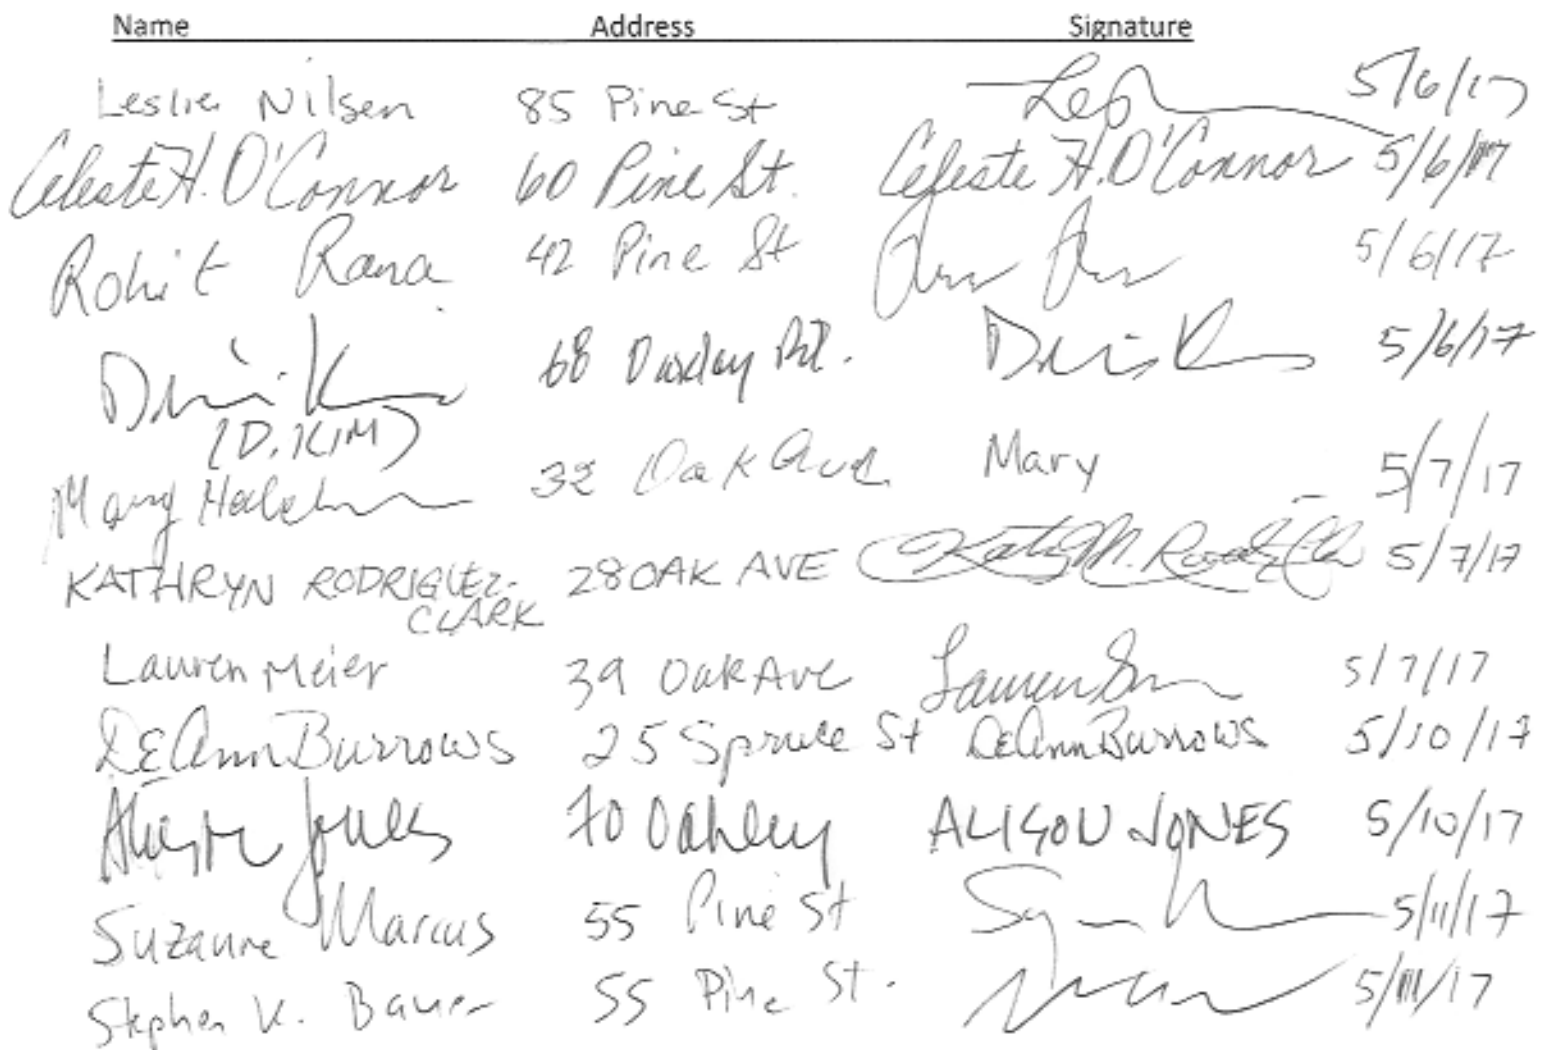 Name Address Signature
Leslie Nilsen 85 Pine St 5/6/17
Celeste H. O'Connor 60 Pine St. Celeste H. O'Connor 5/6/17
Rohit Rana 42 Pine St 5/6/17
68 Oakley Rd. 5/6/17
(D. KIM)
Mary 32 Oak Ave Mary 5/7/17
KATHRYN RODRIGUEZ- 28 OAK AVE 5/7/17
CLARK
Lauren Meier 39 Oak Ave Lauren 5/7/17
DeAnn Burrows 25 Spruce St DeAnn Burrows 5/10/17
Alison Jones 70 Oakley ALISON JONES 5/10/17
Suzanne Marcus 55 Pine St 5/11/17
Stephen K. Bauer 55 Pine St. 5/11/17